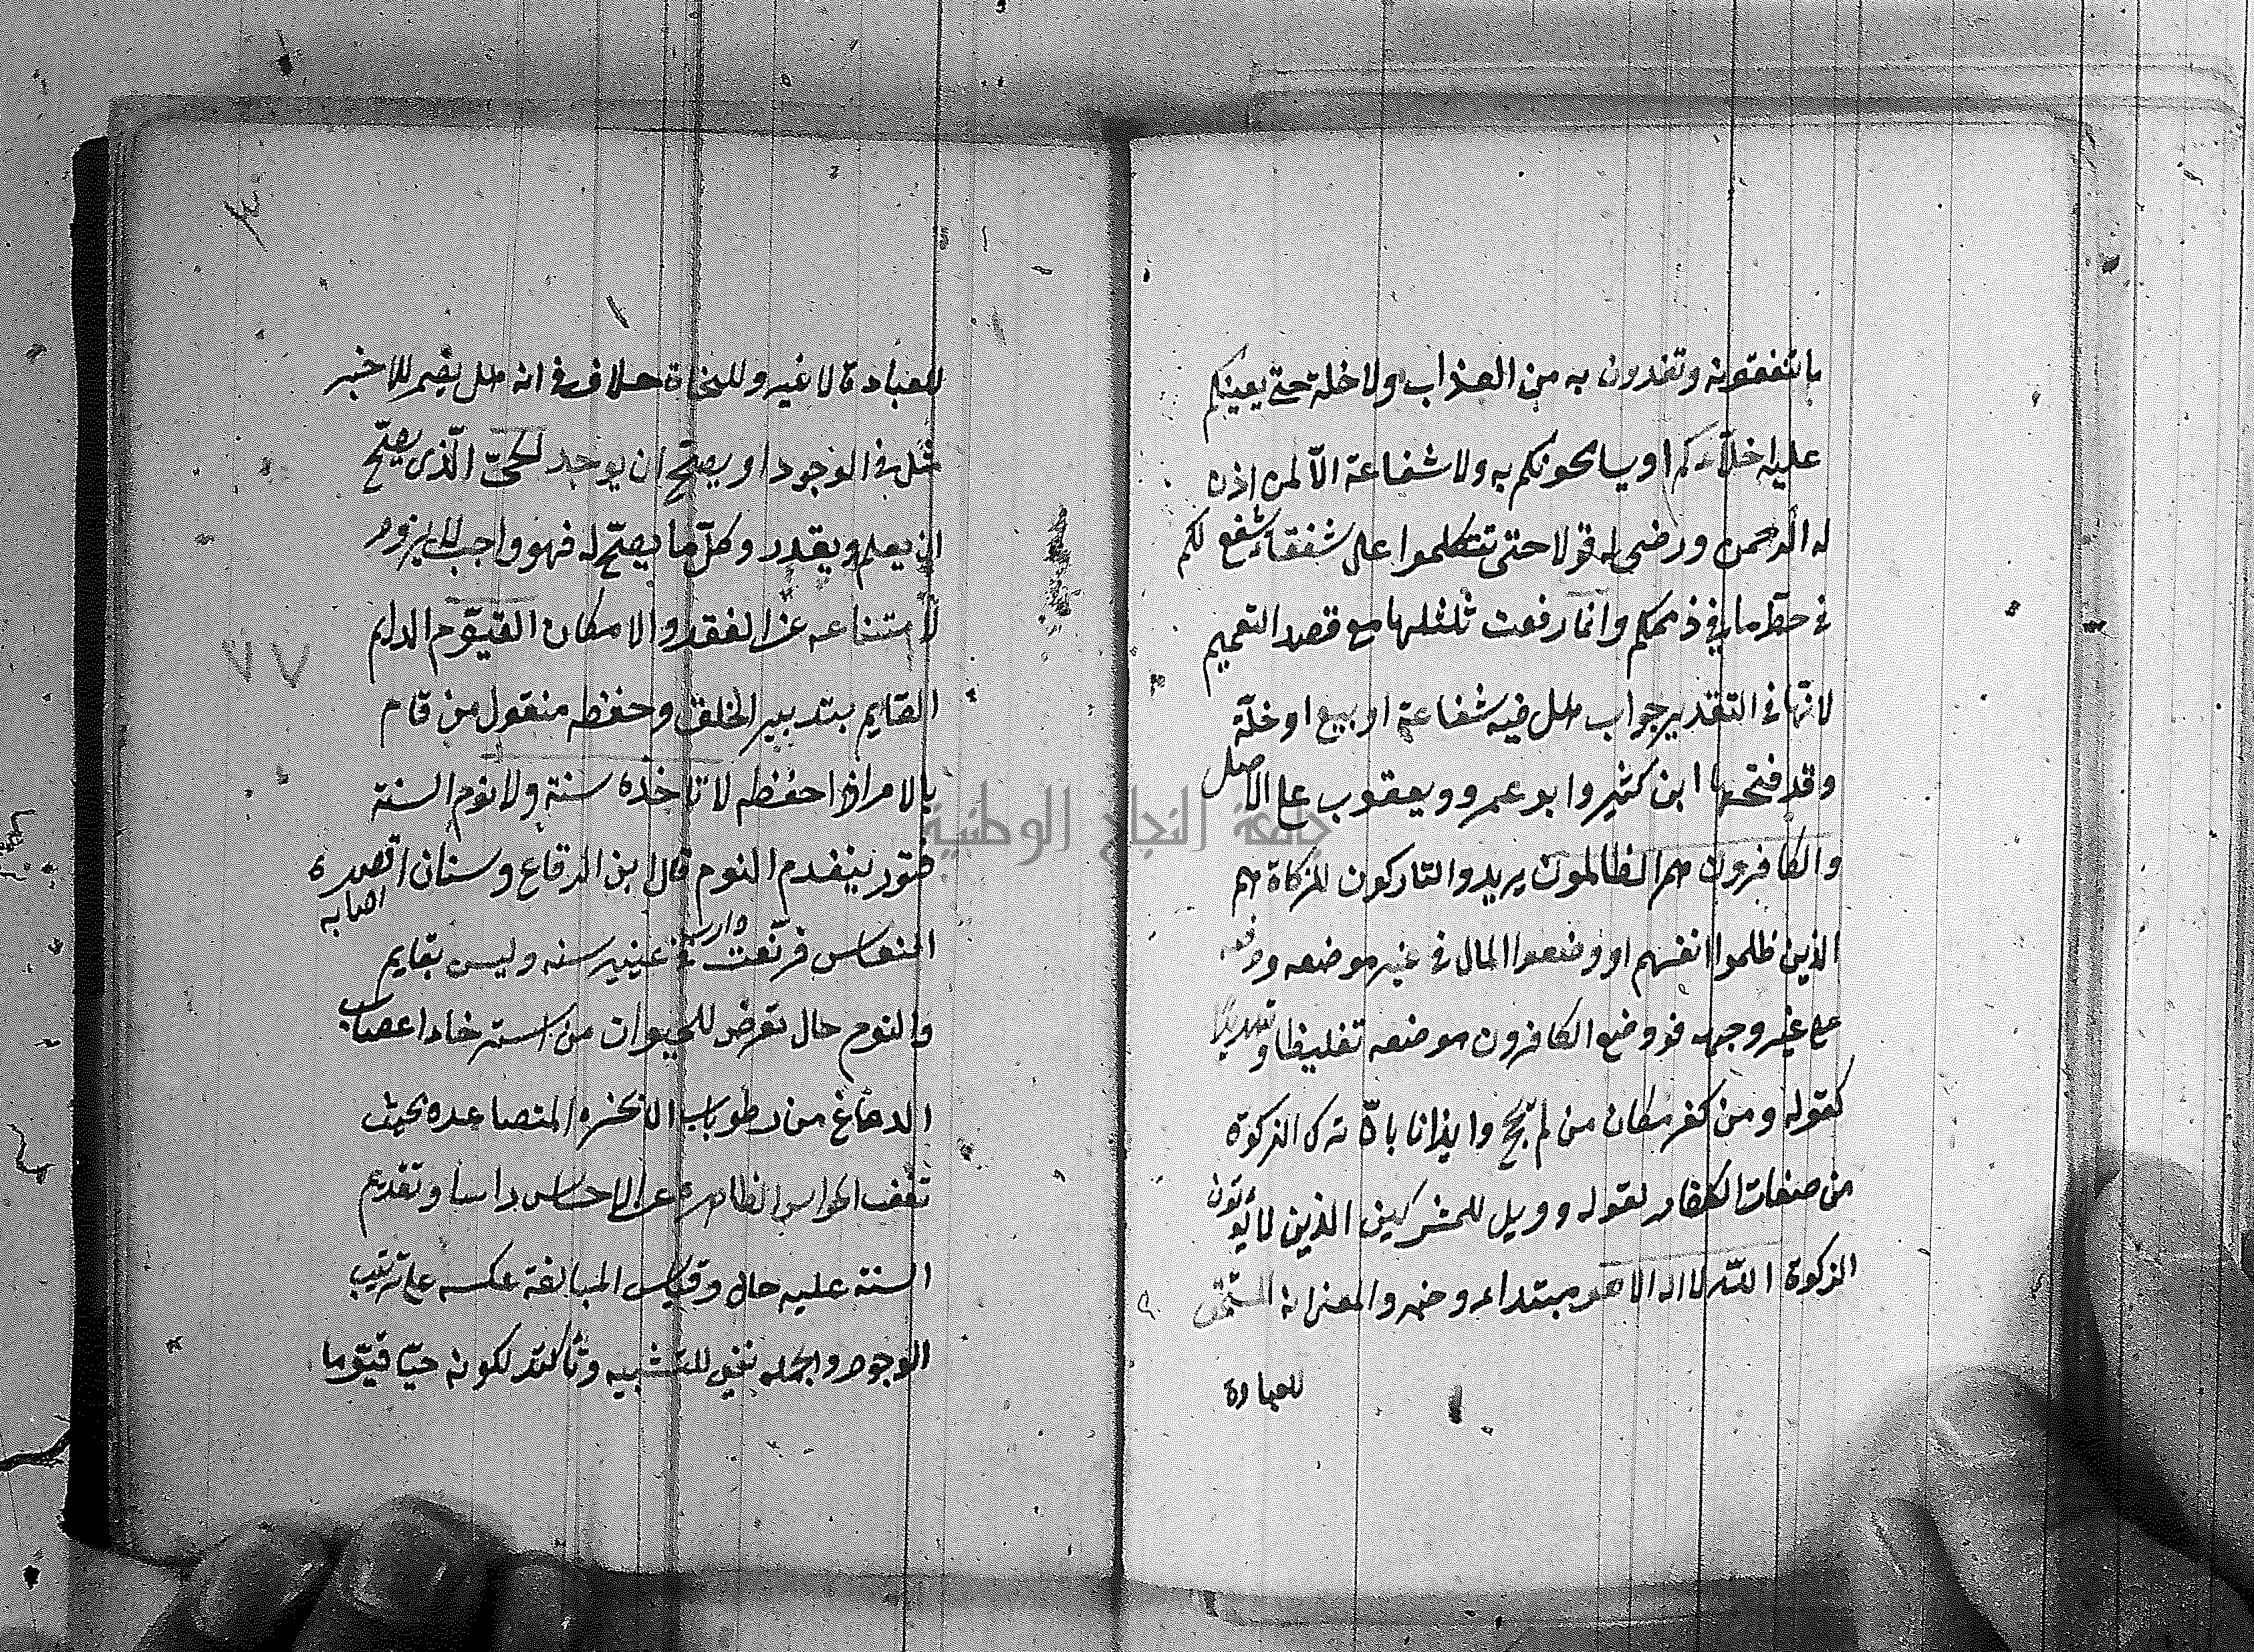 ما تنفقونه وتفدون به من العذاب ولا خلة حتى يعينكم
عليه اخلاءكم او يسامحونكم به ولا شفاعة الا لمن اذن
له الرحمن ورضي له قولا حتى تتكلموا على شفعاء يشفع لكم
في حط ما في ذممكم وانما رفعت ثلثلها مع قصد التعميم
لانها في التقدير جواب هل فيه شفاعة او بيع او خلة
وقد فتحها ابن كثير وابو عمرو ويعقوب على الاصل
والكافرون هم الظالمون يريد والتاركون للزكاة هم
الذين ظلموا انفسهم او وضعوا المال في غير موضعه وصرفه
على غير وجهه فوضع الكافرون موضعه تغليظا وتهديدا
كقوله ومن كفر مكان من لم يحج وايذانا بان ترك الزكوة
من صفات الكفار لقوله وويل للمشركين الذين لا يؤتون
الزكوة الله لا اله الا هو مبتداء وخبر والمعنى انه المستحق
للعبادة
للعبادة لا غير وللنحاة خلاف في انه هل يضمر للا خبر
مثل في الوجود او يصح ان يوجد الحي الذي يصح
ان يعلم ويقدر وكل ما يصح له فهو واجب لا يزول
لامتناعه عن الفقد والامكان القيوم الدايم
القايم بتدبير الخلق وحفظه منقول من قام
بالامر اذا حفظه لا تاخذه سنة ولا نوم السنة
فتور يتقدم النوم قال ابن الرقاع وسنان اقصده
اصابه
النعاس فرنقت في عينه سنه وليس بنايم
دارت
والنوم حال تعرض للحيوان من استرخاء اعصاب
الدماغ من رطوبات الابخره المتصاعده بحيث
تقف الحواس الظاهره عن الاحساس راسا وتقديم
السنة عليه حال وقياس المبالغة عكسه على ترتيب
الوجود والجمله نفي للتشبيه وتأكيد لكونه حيا قيوما
٧٧
جامعة النجاح الوطنية